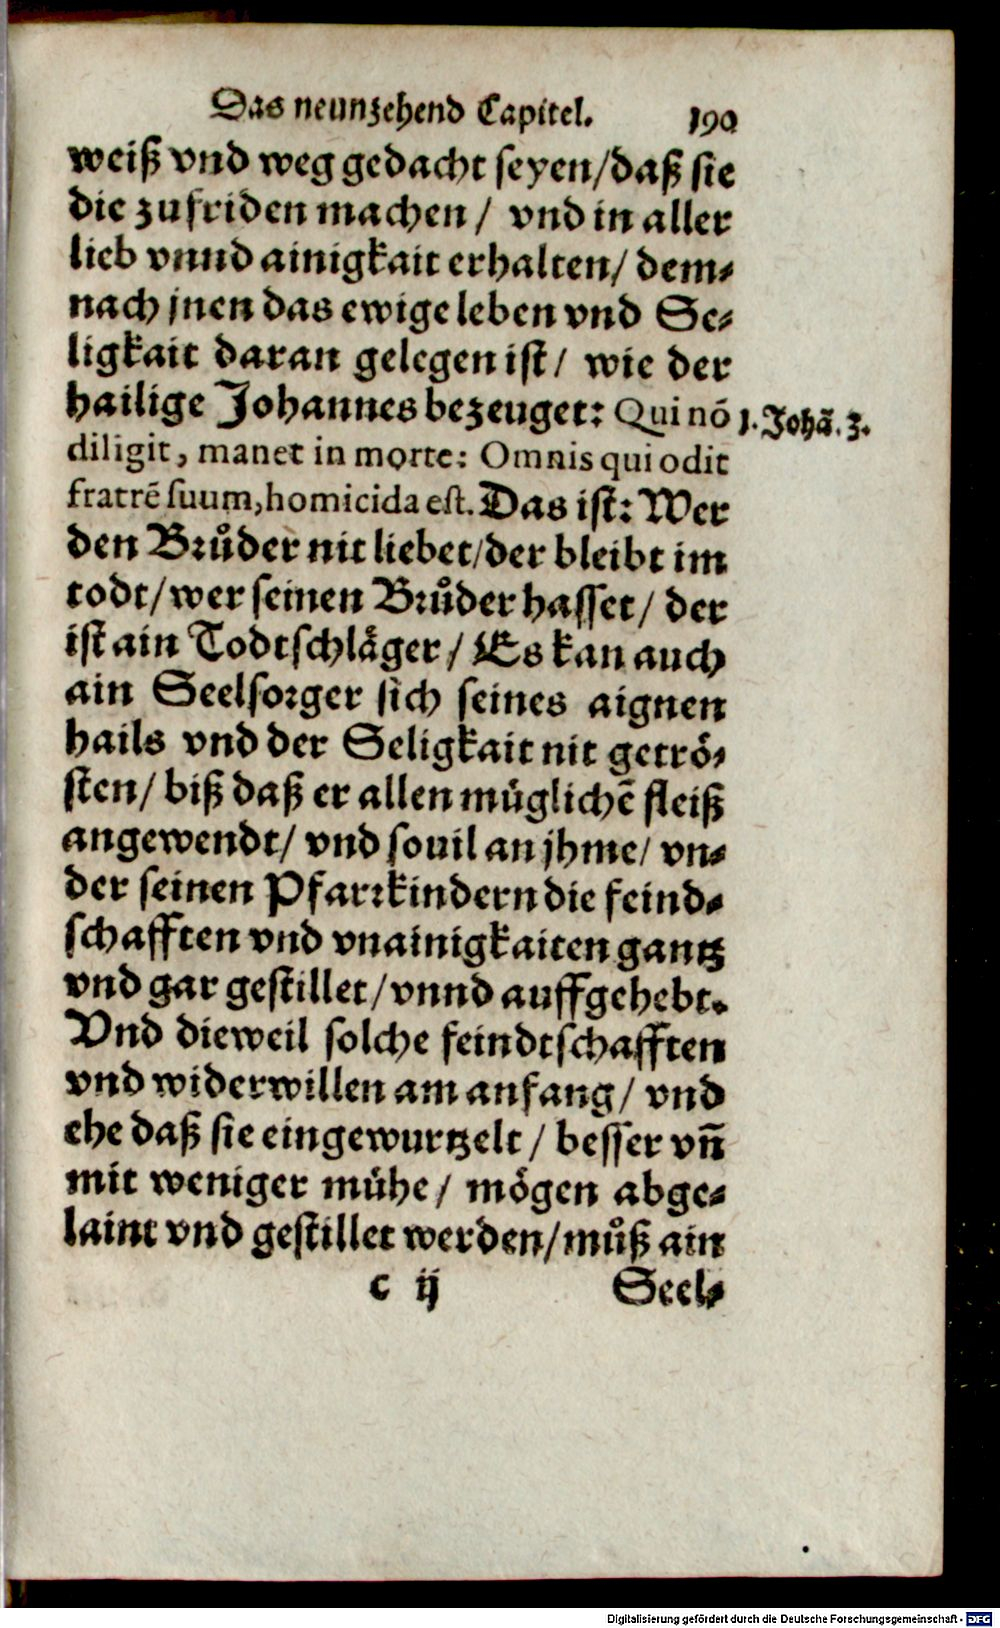 Das neunzehend Capitel. 190
weiß vnd weg gedacht seyen/daß sie
die zufriden machen / vnd in aller
lieb vnnd ainigkait erhalten/ dem⸗
nach jnen das ewige leben vnd Se⸗
ligkait daran gelegen ist/ wie der
hailige Johannes bezeuget: Qui nō
1. Johā. 3.
diligit, manet in morte: Omnis qui odit
fratrē suum, homicida est. Das ist: Wer
den Brůder nit liebet/der bleibt im
todt/wer seinen Brůder hasset/ der
ist ain Todtschläger / Es kan auch
ain Seelsorger sich seines aignen
hails vnd der Seligkait nit getrö⸗
sten/ biß daß er allen müglichē fleiß
angewendt/ vnd souil an jhme/ vn⸗
der seinen Pfarrkindern die feind⸗
schafften vnd vnainigkaiten gantz
vnd gar gestillet/vnnd auffgehebt.
Vnd dieweil solche feindtschafften
vnd widerwillen am anfang/ vnd
ehe daß sie eingewurtzelt / besser vn̄
mit weniger mühe/ mögen abge⸗
laint vnd gestillet werden/můß ain
c ij Seel⸗
Digitalisierung gefördert durch die Deutsche Forschungsgemeinschaft - DFG